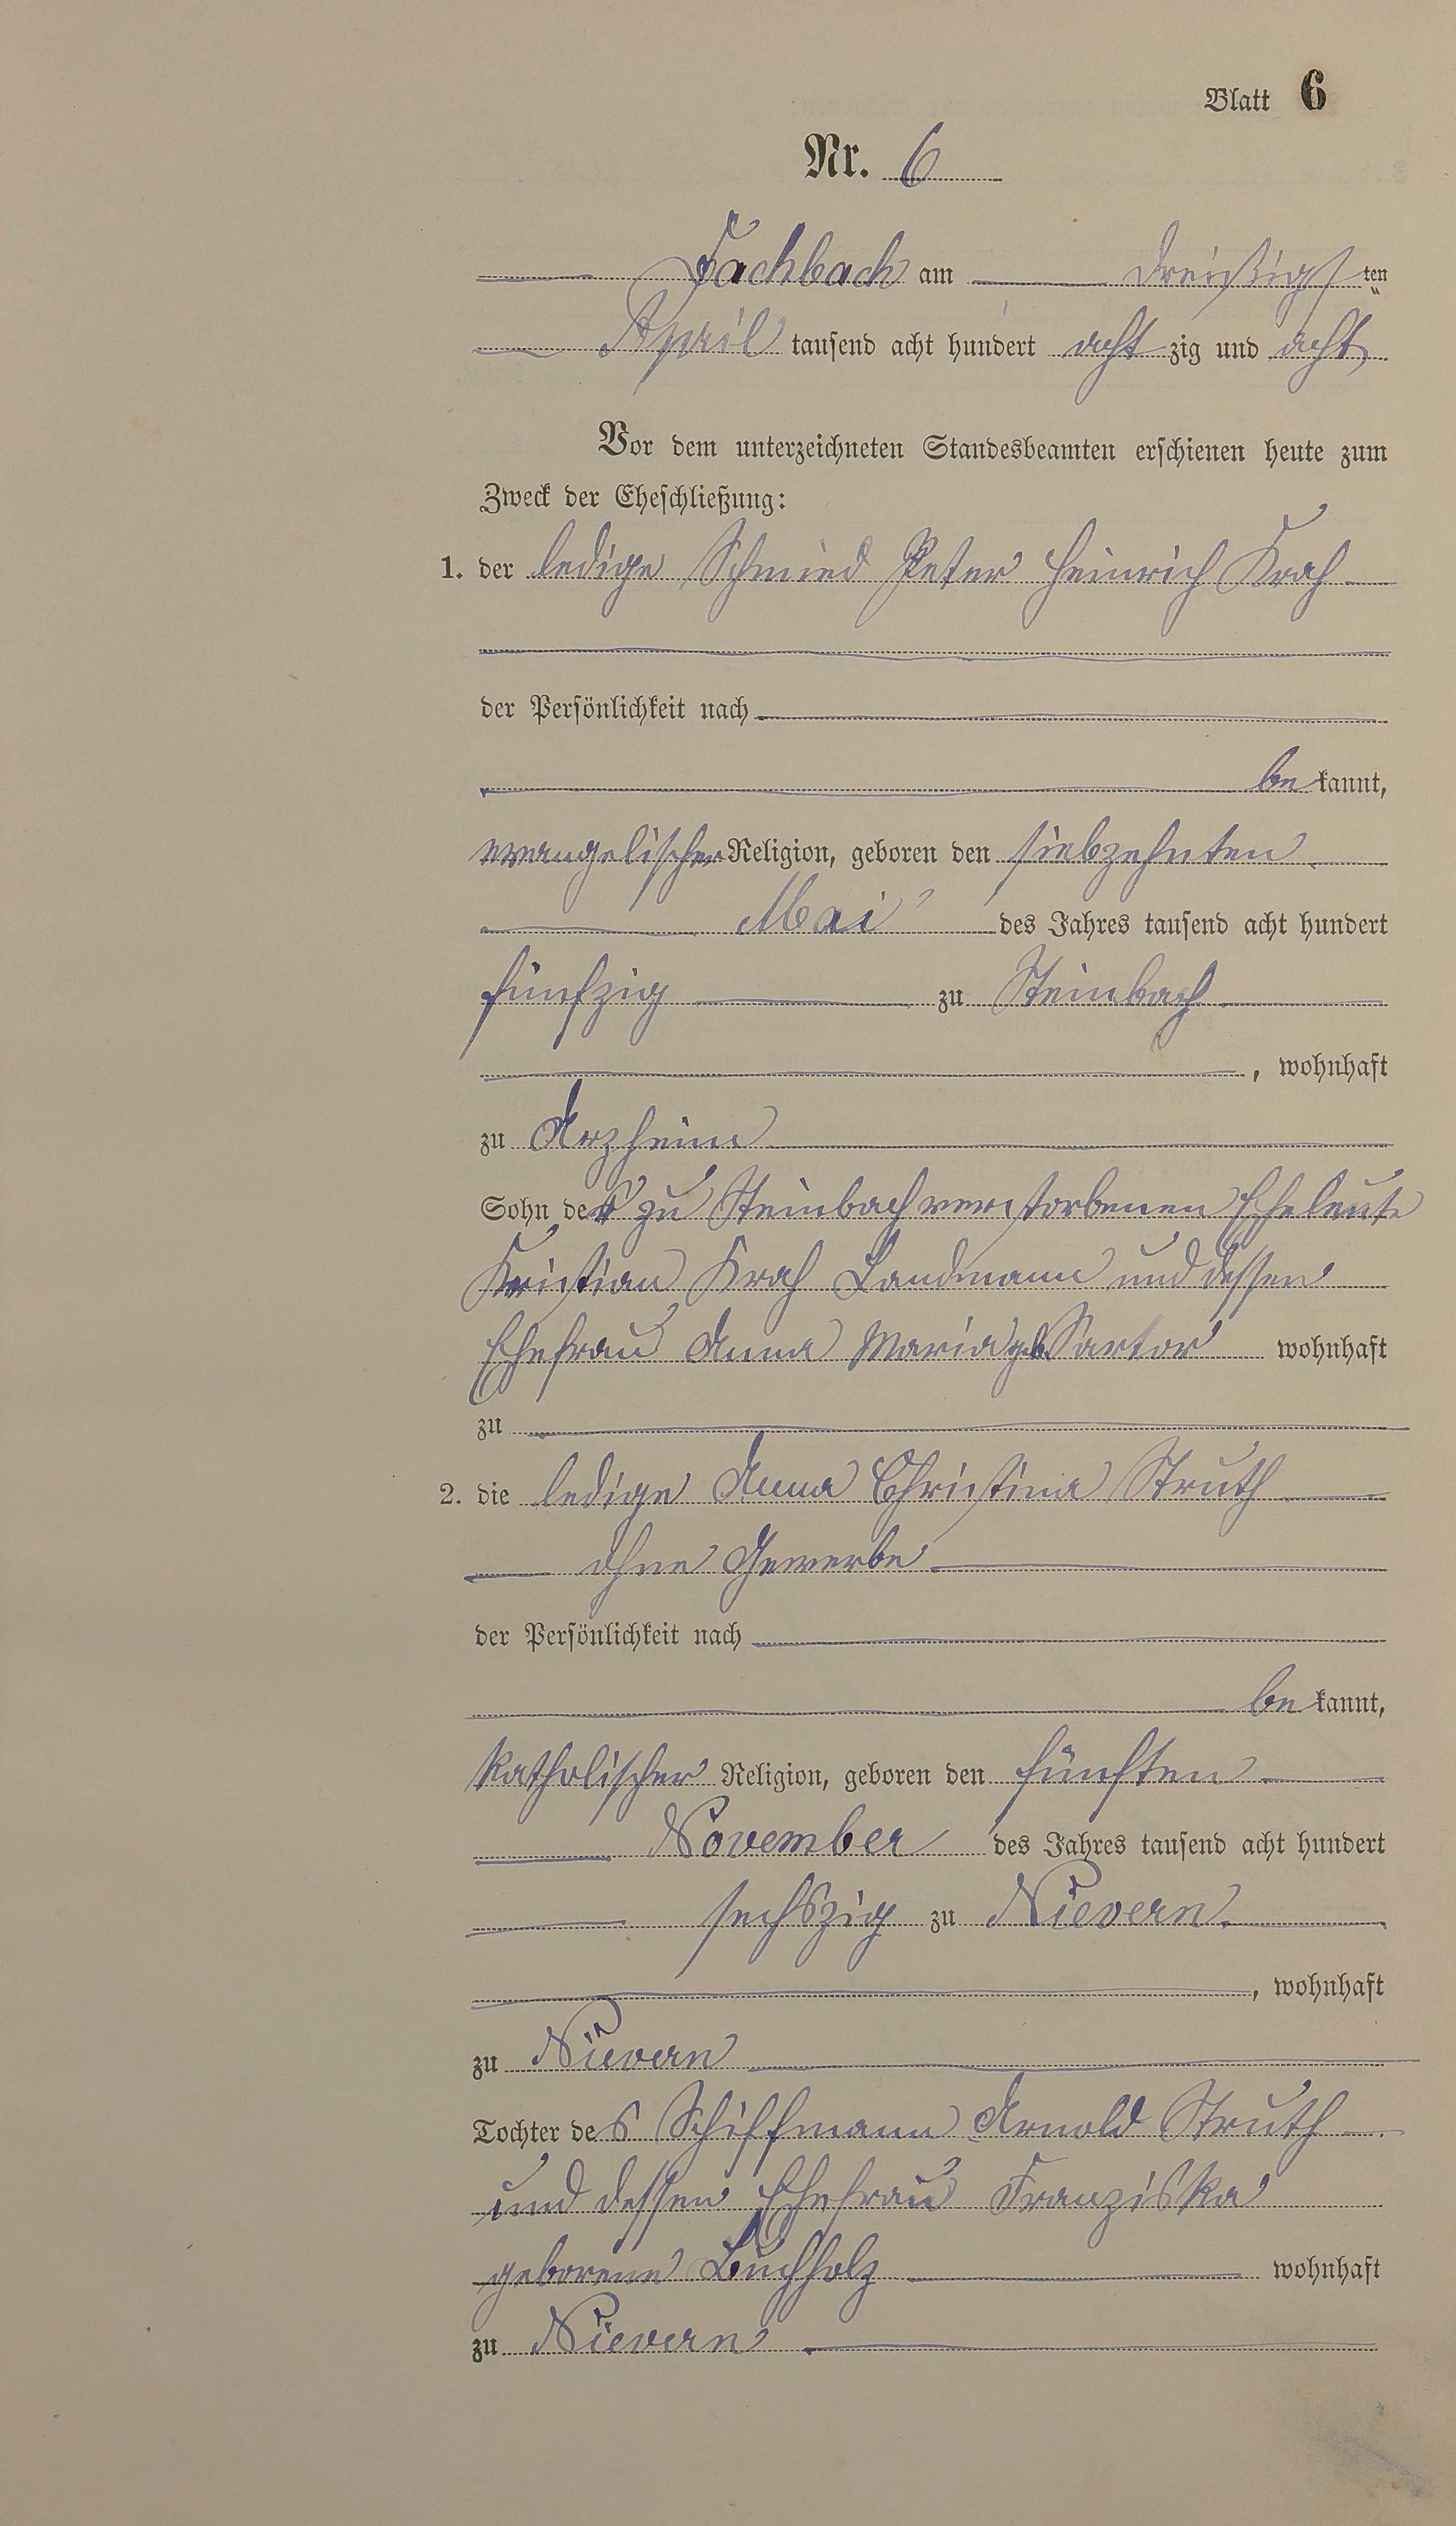 Blatt 6
Nr. 6
Fachbach am dreißigsten
April tausend acht hundert acht zig und acht
Vor dem unterzeichneten Standesbeamten erschienen heute zum
Zweck der Eheschließung:
1. der ledige Schmied Peter Heinrich Krah
der Persönlichkeit nach
be kannt,
evangelischer Religion, geboren den siebzehnten
Mai des Jahres tausend acht hundert
fünfzig zu Steinbach
, wohnhaft
zu Arzheim
Sohn der zu Steinbach verstorbenen Eheleute
Kristian Krah Landmann und dessen
Ehefrau Anna Maria geb. Sartor wohnhaft
zu
2. die ledige Anna Christina Struth
ohne Gewerbe
der Persönlichkeit nach
be kannt,
katholischer Religion, geboren den fünften
November des Jahres tausend acht hundert
sechszig zu Nievern
, wohnhaft
zu Nievern
Tochter des Schiffmann Arnold Struth
und dessen Ehefrau Franziska
geborene Buchholz wohnhaft
zu Nievern